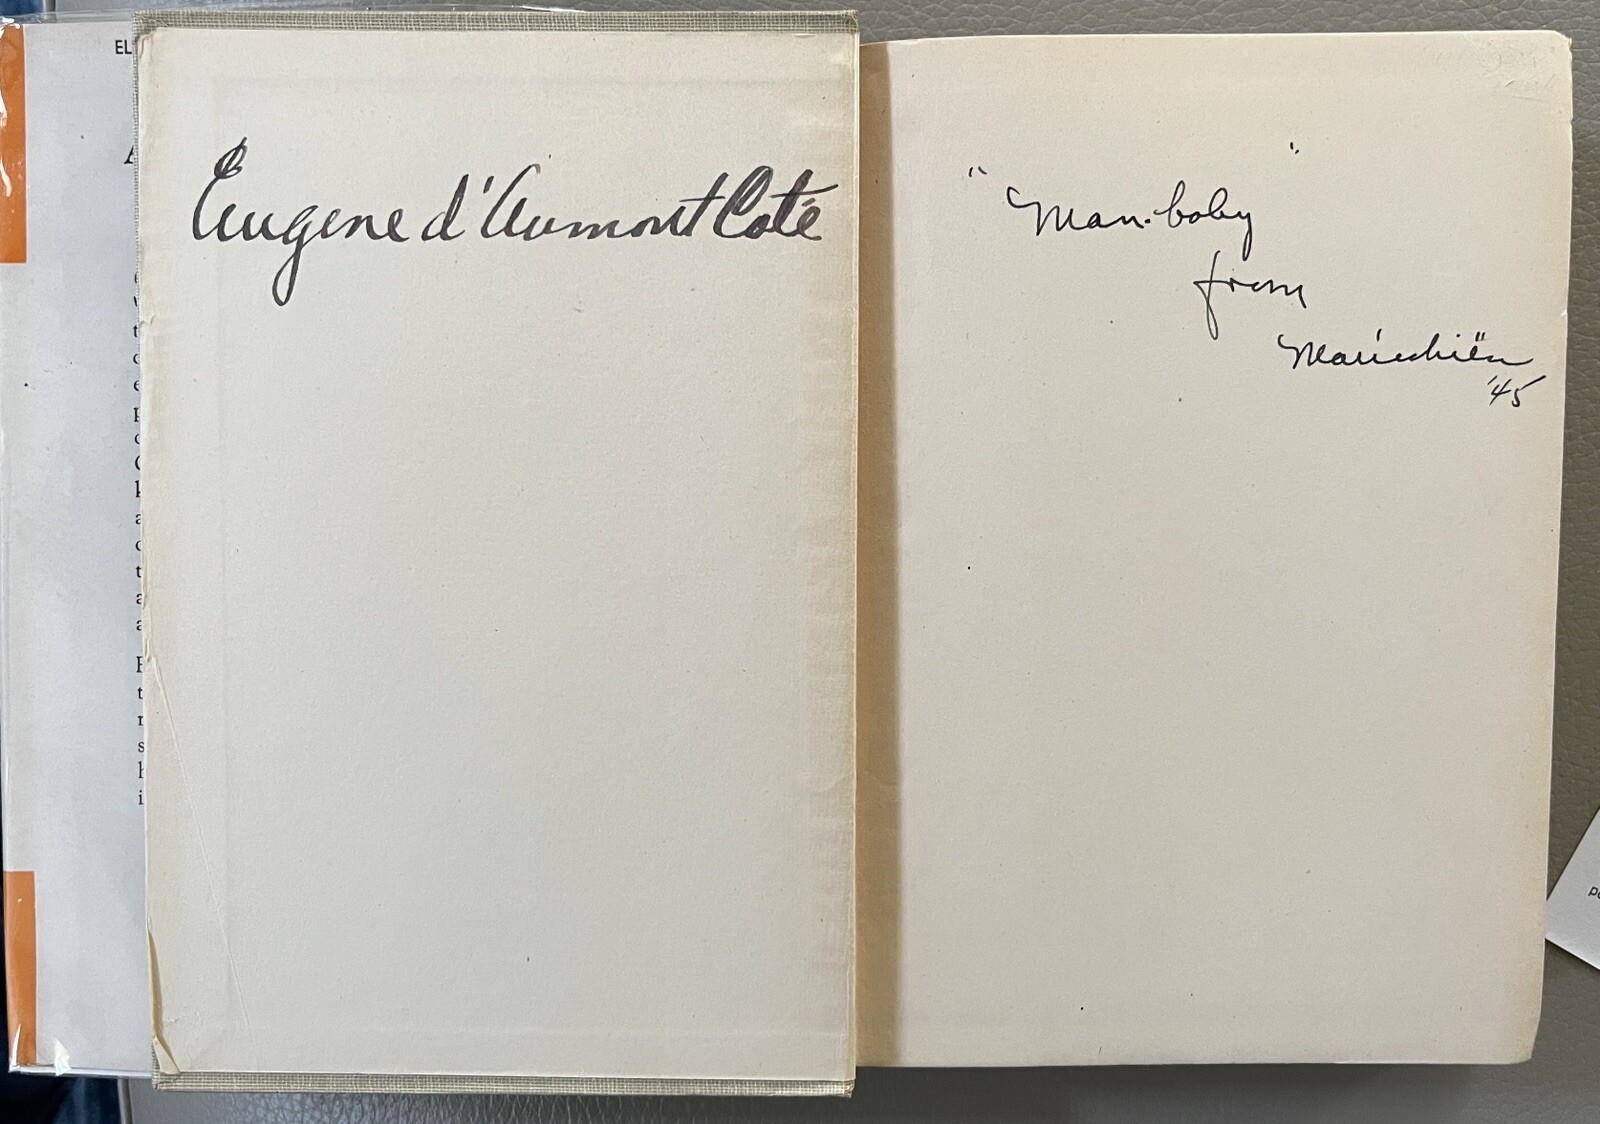 EL
Eugene d'Aumont Coté
"Man-baby"
from
'45